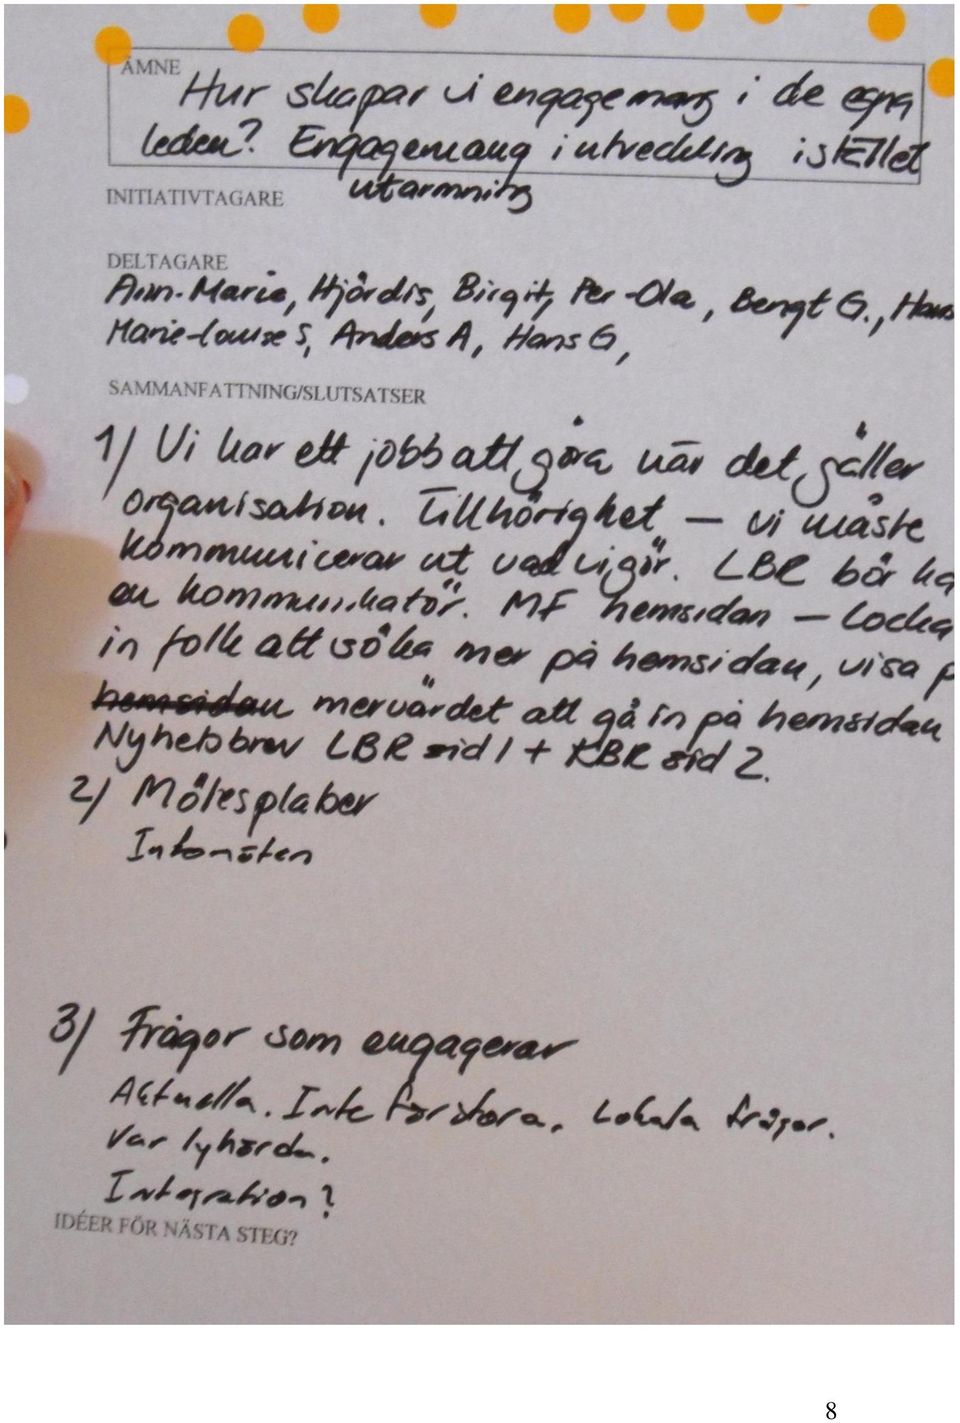 ÄMNE
Hur skapar vi engagemang i de egna
leden? Engagemang i utveckling istället
utarmning
INITIATIVTAGARE
DELTAGARE
Ann-Marie, Hjördis, Birgit, Per-Ola, Bengt G., Hans
Marie-Louise S, Anders A, Hans G,
SAMMANFATTNING/SLUTSATSER
1/ Vi har ett jobb att göra när det gäller
organisation. Tillhörighet – vi måste
kommunicerar ut vad vi gör. LBR bör ha
en kommunikatör. MF hemsidan – locka
in folk att söka mer på hemsidan, visa p
hemsidan mervärdet att gå in på hemsidan
Nyhetsbrev LBR sid 1 + KBR sid 2.
2/ Mötesplatser
Intomöten
3/ Frågor som engagerar
Aktuella. Inte för stora. Lokala frågor.
Var lyhörda.
Integration?
IDÉER FÖR NÄSTA STEG?
8